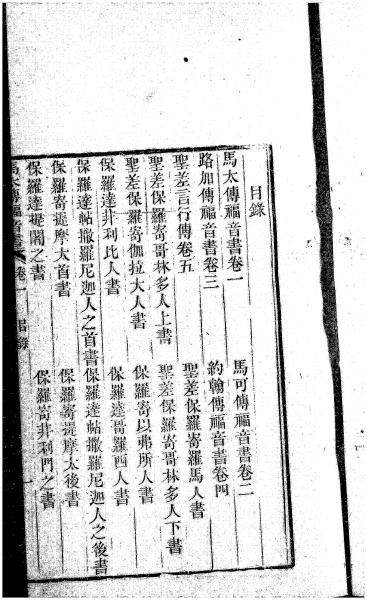 目錄
馬太傳福音書卷一
馬可傳福音書卷二
路加傳福音書卷三
約翰傳福音書卷四
聖差言行傳卷五
聖差保羅寄羅馬人書
聖差保羅寄哥林多人上書
聖差保羅寄哥林多人下書
聖差保羅寄伽拉太人書
保羅寄以弗所人書
保羅達非利比人書
保羅達哥羅西人書
保羅達帖撒羅尼迦人之首書
保羅達帖撒羅尼迦人之後書
保羅寄提摩太首書
保羅寄提摩太後書
保羅達提鬧之書
保羅寄非利門之書
馬太傳福音書 卷一 目錄 一